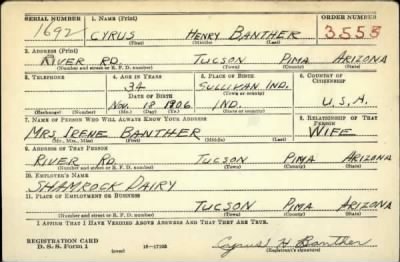 SERIAL NUMBER 1. NAME (Print) ORDER NUMBER
1692 CYRUS HENRY BANTHER 3555
(First) (Middle) (Last)
2. ADDRESS (Print)
RIVER RD. TUCSON PIMA ARIZONA
(Number and street or R. F. D. number) (Town) (County) (State)
3. TELEPHONE 4. AGE IN YEARS 5. PLACE OF BIRTH 6. COUNTRY OF CITIZENSHIP
34 SULLIVAN IND.
DATE OF BIRTH (Town or county)
NOV. 18 1906. IND. U.S.A.
(Exchange) (Number) (Mo.) (Day) (Yr.) (State or country)
7. NAME OF PERSON WHO WILL ALWAYS KNOW YOUR ADDRESS 8. RELATIONSHIP OF THAT PERSON
MRS IRENE BANTHER WIFE
(Mr., Mrs., Miss) (First) (Middle) (Last)
9. ADDRESS OF THAT PERSON
RIVER RD. TUCSON PIMA ARIZONA
(Number and street or R. F. D. number) (Town) (County) (State)
10. EMPLOYER'S NAME
SHAMROCK DAIRY
11. PLACE OF EMPLOYMENT OR BUSINESS
TUCSON PIMA ARIZONA
(Number and street or R. F. D. number) (Town) (County) (State)
I AFFIRM THAT I HAVE VERIFIED ABOVE ANSWERS AND THAT THEY ARE TRUE.
REGISTRATION CARD
D. S. S. Form 1 (over) Cyrus H Banther
(Registrant's signature)